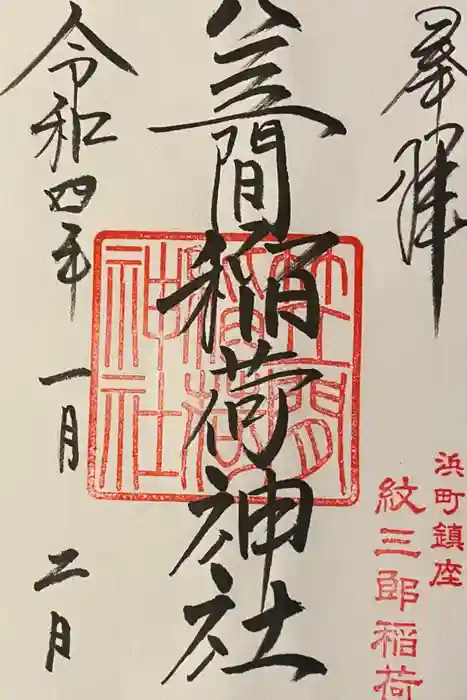 奉拝
浜町鎮座
紋三郎稲荷
笠間稲荷神社
笠間
稲荷
神社
令和四年一月二日